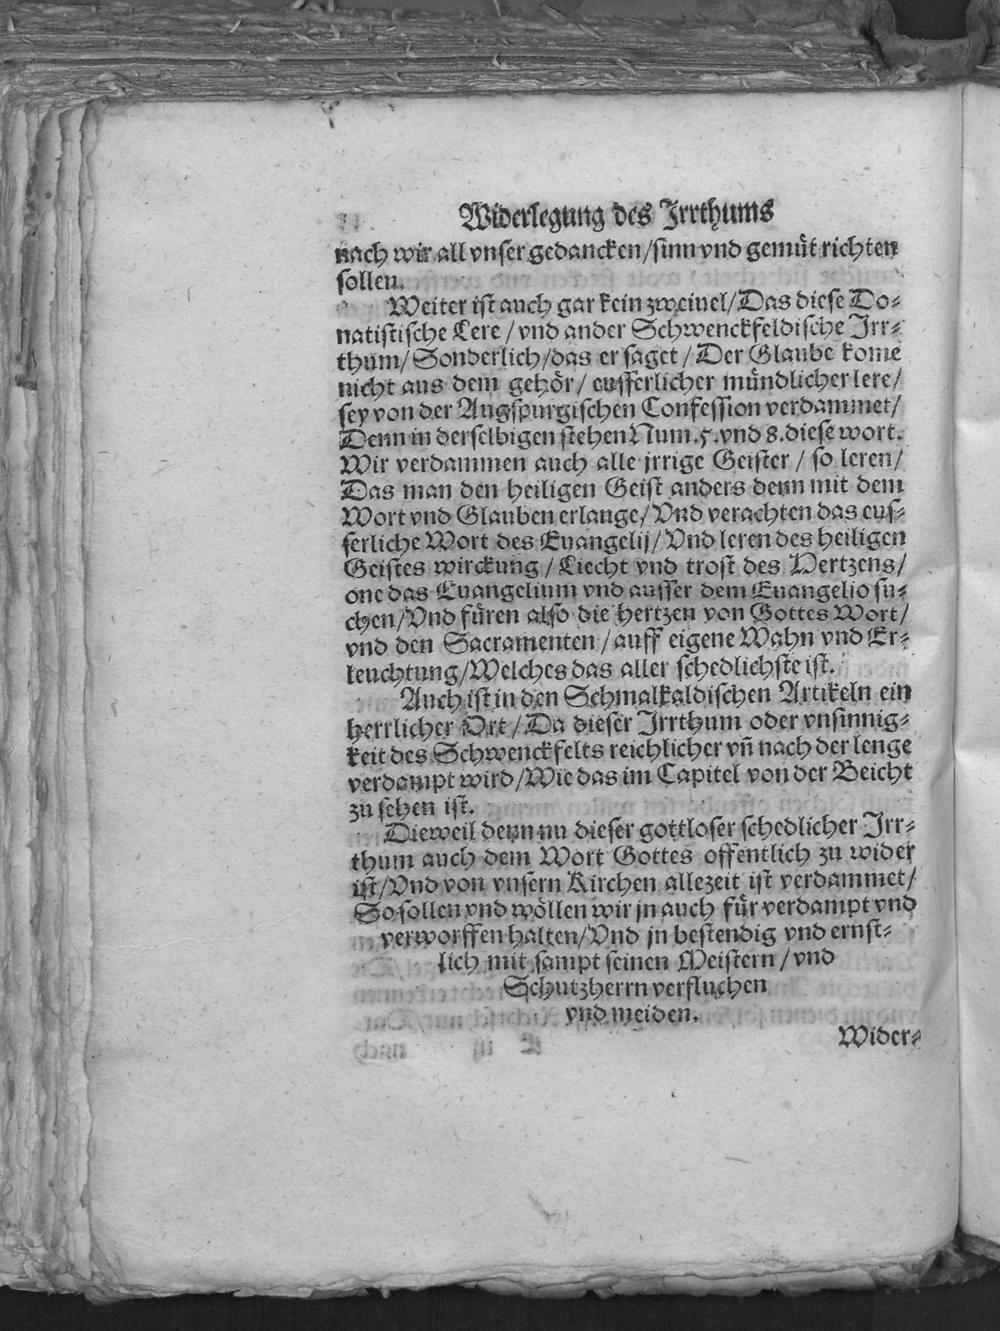 Widerlegung des Jrrthums
nach wir all vnser gedancken/sinn vnd gemüt richten
sollen.
Weiter ist auch gar kein zweiuel/Das diese Do-
natistische Lere/vnd ander Schwenckfeldische Jrr-
thum/Sonderlich/das er saget/Der Glaube kome
nicht aus dem gehör/eusserlicher mündlicher lere/
sey von der Augspurgischen Confession verdammet/
Denn in derselbigen stehen Num.5.vnd 8.diese wort.
Wir verdammen auch alle jrrige Geister/so leren/
Das man den heiligen Geist anders denn mit dem
Wort vnd Glauben erlange/Vnd verachten das eus-
serliche Wort des Euangelij/Vnd leren des heiligen
Geistes wirckung/Liecht vnd trost des Hertzens/
one das Euangelium vnd ausser dem Euangelio su-
chen/Vnd füren also die hertzen von Gottes Wort/
vnd den Sacramenten/auff eigene Wahn vnd Er-
leuchtung/Welches das aller schedlichste ist.
Auch ist in den Schmalkaldischen Artikeln ein
herrlicher Ort/Da dieser Jrrthum oder vnsinnig-
keit des Schwenckfelts reichlicher vñ nach der lenge
verdampt wird/Wie das im Capitel von der Beicht
zu sehen ist.
Dieweil denn nu dieser gottloser schedlicher Jrr-
thum auch dem Wort Gottes offentlich zu wider
ist/Vnd von vnsern Kirchen allezeit ist verdammet/
So sollen vnd wöllen wir jn auch für verdampt vnd
verworffen halten/Vnd jn bestendig vnd ernst-
lich mit sampt seinen Meistern/vnd
Schutzherrn verfluchen
vnd meiden.
Wider-